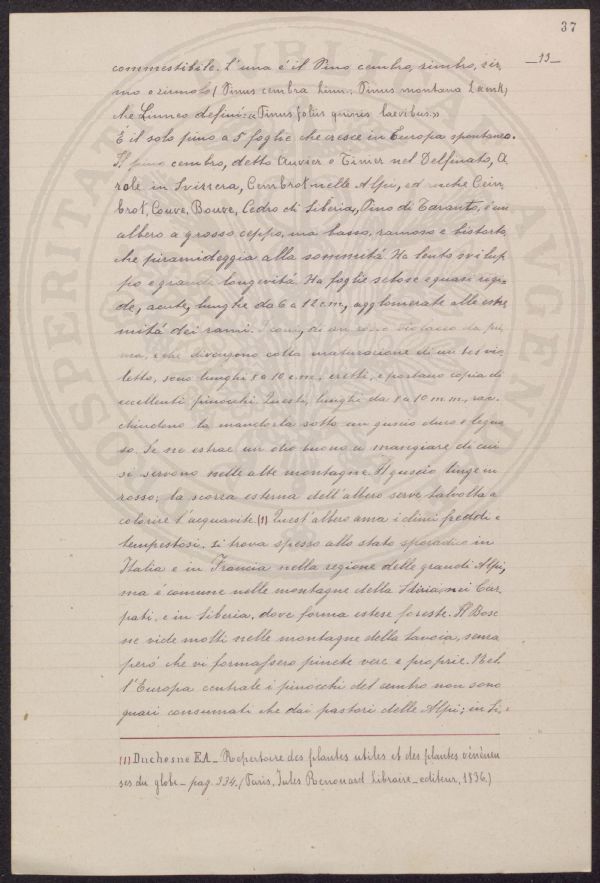 37
_13_
commestibile. L'una é il Pino cembro, zimbro, zir,
mo e zirmolo (Pinus cembra Linn., Pinus montana Lamk)
che Linneo definí: «Pinus foliis quinis laevibus.»
É il solo pino a 5 foglie che cresce in Europa spontaneo.
Il pino cembro, detto Auvier o Tinier nel Delfinato, A,
role in Svizzera, Cembrot nelle Alpi, ed anche Ceim,
brot, Couve, Bouve, Cedro di Siberia, Pino di Taranto, é un
albero a grosso ceppo, ma basso, ramoso e bistorto
che piramideggia alla sommitá. Ha lento svilup,
po e grande longevitá. Ha foglie setose e quasi rigi,
de, acute, lunghe da 6 a 12 c.m., agglomerate alle estre,
mitá dei rami. I coni, di un rosso violaceo da pri,
ma, e che divengono colla maturazione di un bel vio,
letto, sono lunghi 8 o 10 c.m., eretti, e portano copia di
eccellenti pinocchi. Questi, lunghi da 8 a 10 m.m., rac,
chiudono la mandorla sotto un guscio duro e legno
so. Se ne estrae un olio buono a mangiare di cui
si servono nelle alte montagne. Il guscio tinge in
rosso; la scorza esterna dell'albero serve talvolta a
colorire l'acquavite. (1) Quest'albero ama i climi freddi e
tempestosi. Si trova spesso allo stato sporadico in
Italia e in Francia nella regione delle grandi Alpi,
ma é comune nelle montagne della Stiria, nei Car,
pati, e in Siberia, dove forma estese foreste. Il Bosc
ne vide molti nelle montagne della Savoia, senza
peró che vi formassero pinete vere e proprie. Nel,
l'Europa centrale i pinocchi del cembro non sono
guari consumati che dai pastori delle Alpi; in Si,
(1) Duchesne E.A._ Repertoire des plantes utiles et des plantes vénéneu
ses du globe_ pag. 334. (Paris, Jules Renouard Libraire_editeur, 1836.)